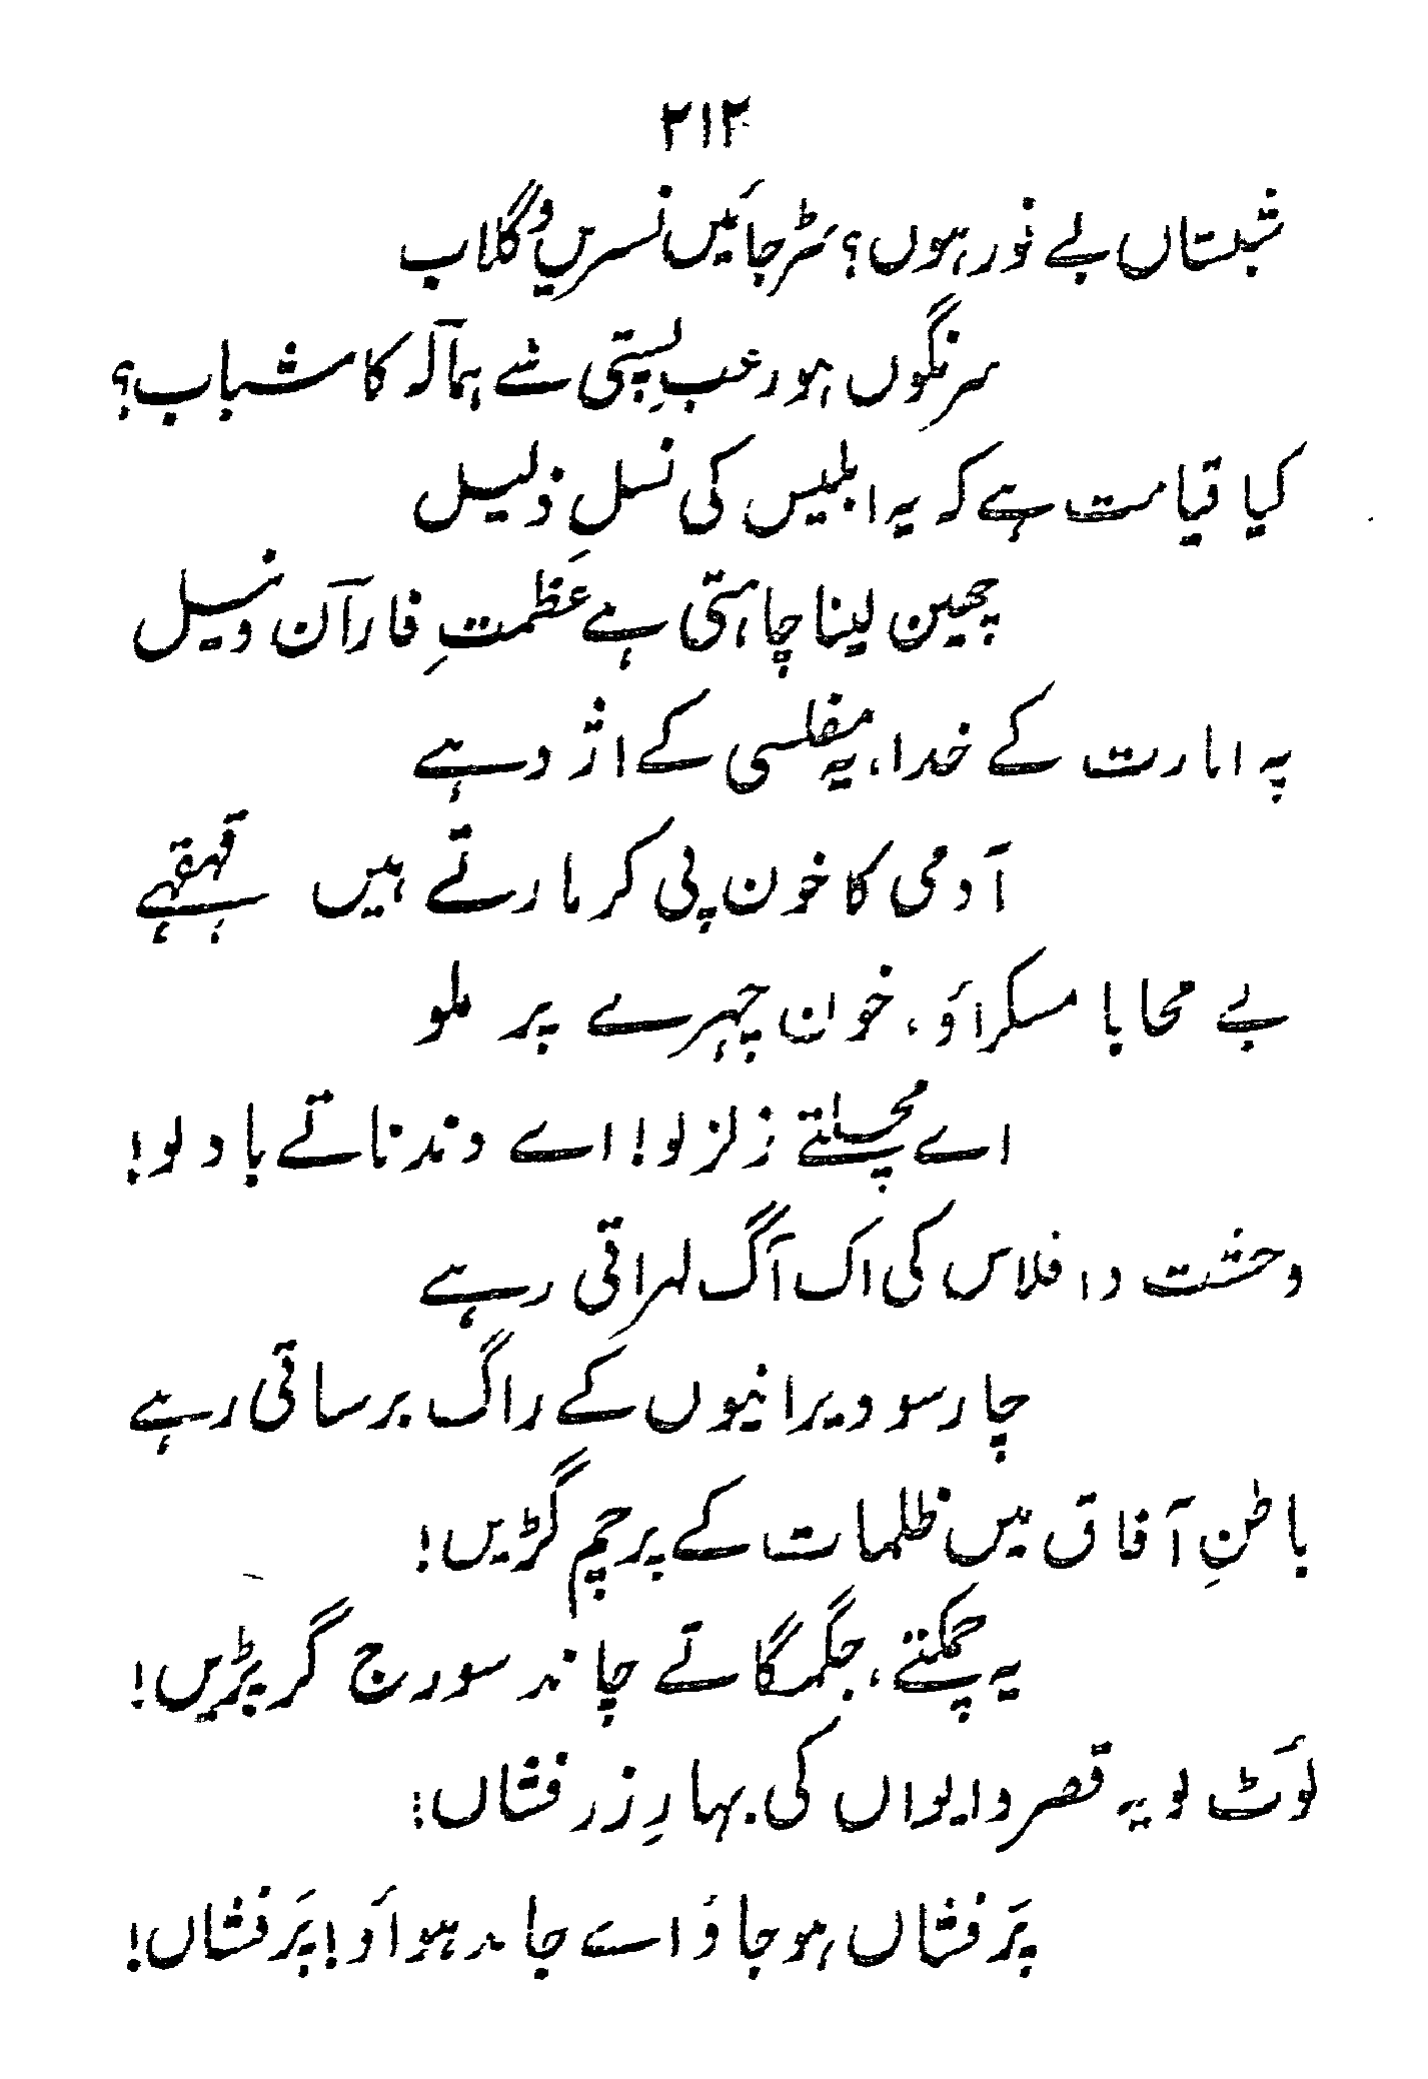 ۲۱۲
شبستاں بے نور ہوں؟ سَڑ جائیں نسریں و گلاب
سرنگوں ہو رعبِ پستی سے ہمآلہ کا شباب؟
کیا قیامت ہے کہ یہ ابلیس کی نسلِ ذلیل
چھین لینا چاہتی ہے عَظمتِ فارآن و نیل
یہ امارت کے خدا، یہ مفلسی کے اژدہے
آدمی کا خون پی کر مارتے ہیں قہقہے
بے محابا مسکراؤ، خون چہرے پر ملو
اے مچلتے زلزلو! اے دندناتے بادلو!
وحشت و افلاس کی اک آگ لہراتی رہے
چار سو ویرانیوں کے راگ برساتی رہے
باطنِ آفاق میں ظلمات کے پرچم گڑیں!
یہ چمکتے، جگمگاتے چاند سورج گر پڑیں!
لُوٹ لو یہ قصر و ایواں کی بہارِ زرفشاں!
پَرفشاں ہو جاؤ اے جامد ہواؤ! پَرفشاں!